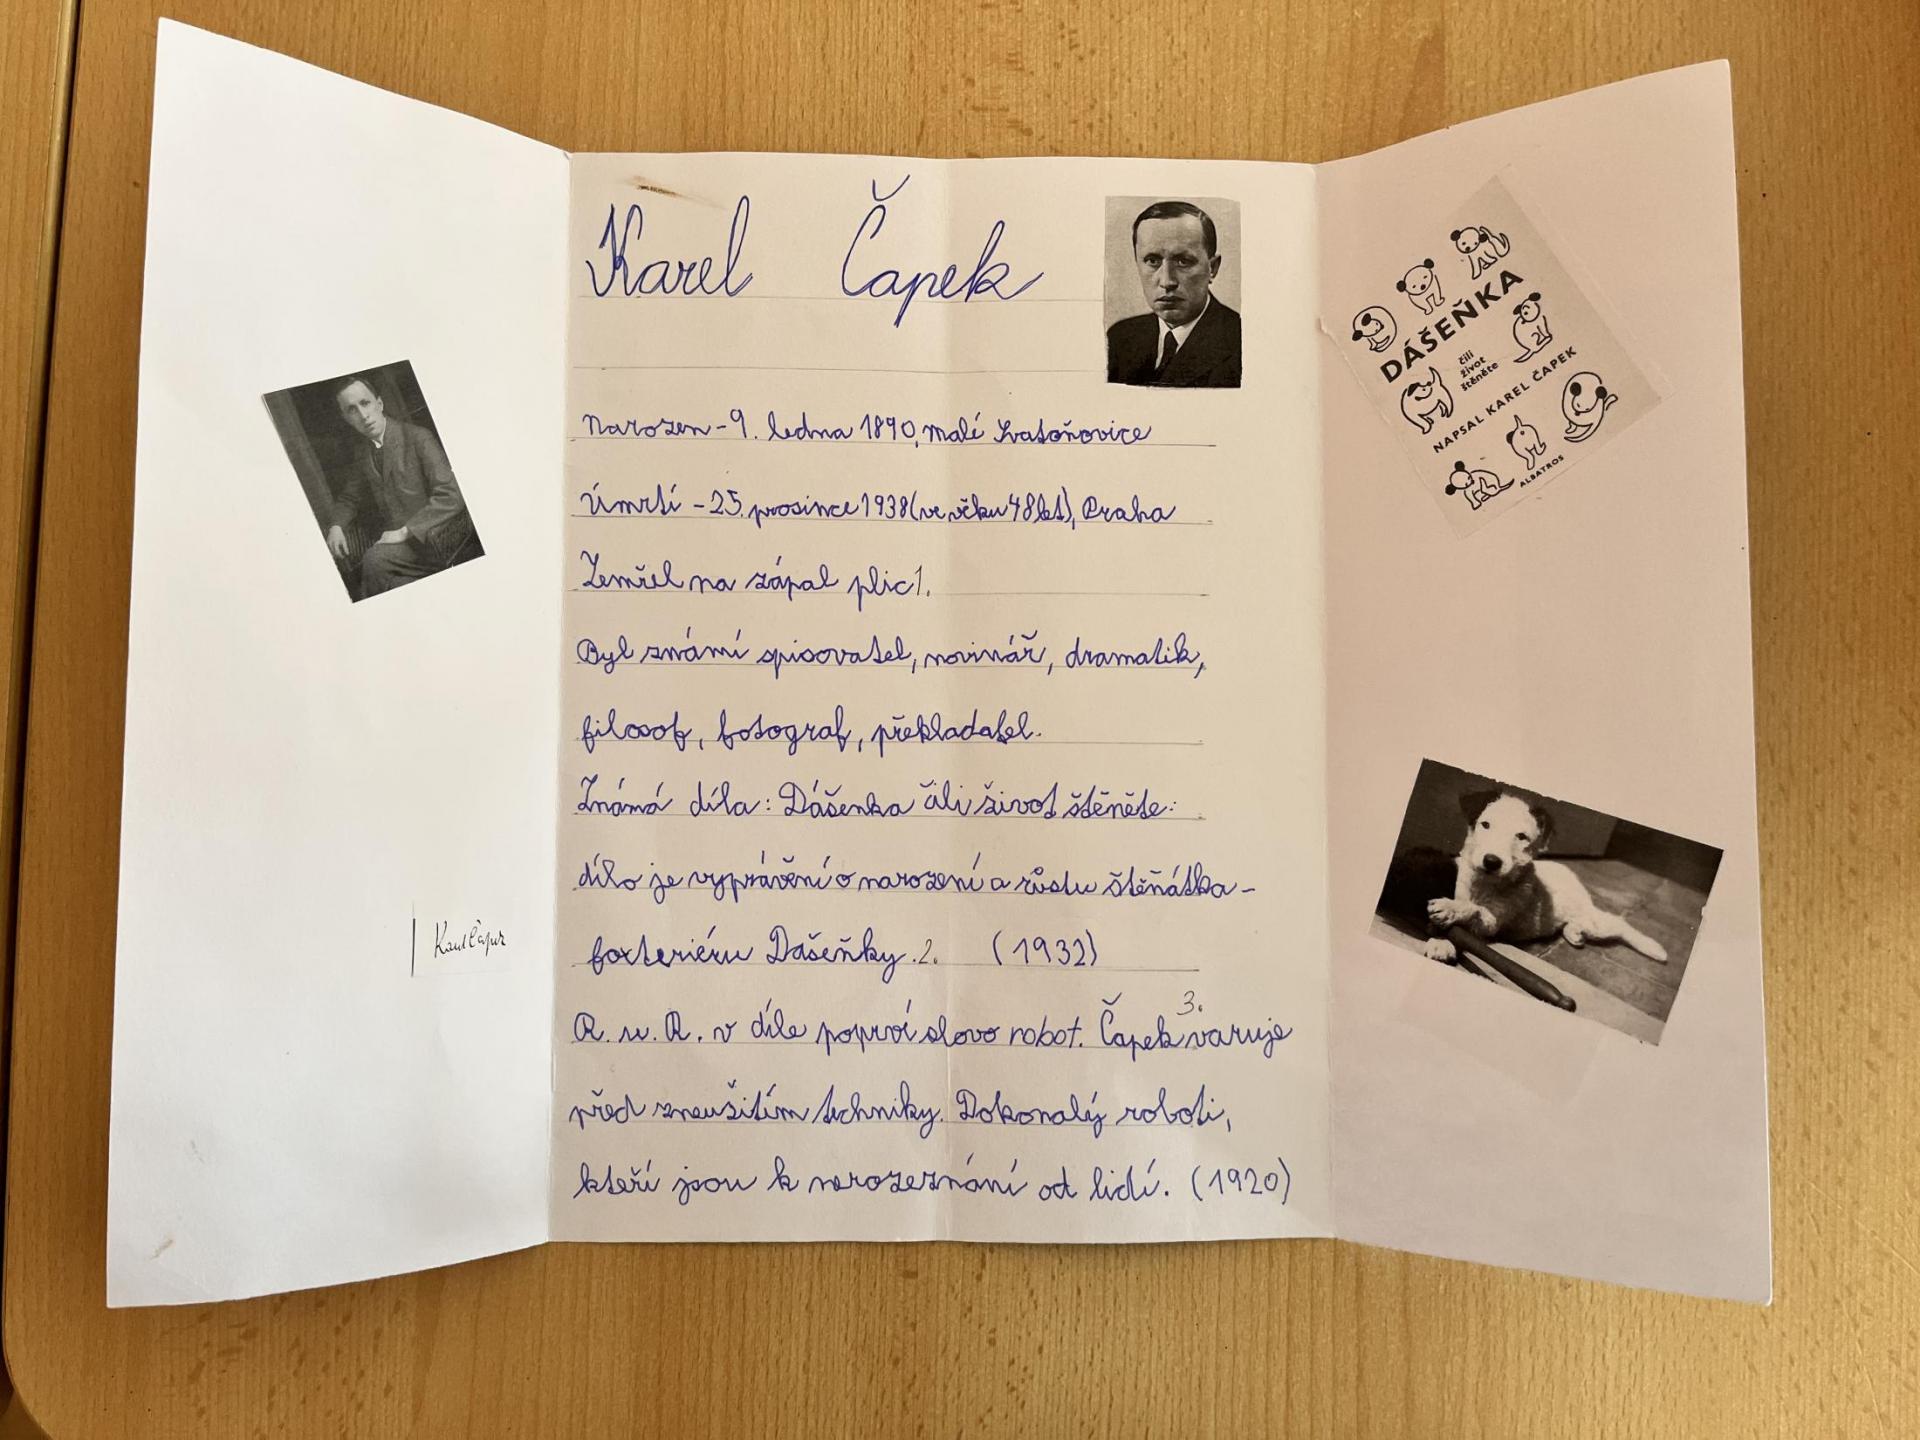 Karel Čapek
Narozen - 9. ledna 1890, malé Svatoňovice
Úmrtí - 25. prosince 1938 (ve věku 48 let), Praha
Zemřel na zápal plic 1.
Byl známí spisovatel, novinář, dramatik,
filosof, fotograf, překladatel.
Známá díla: Dášenka čili život štěněte:
dílo je vyprávění o narození a růstu štěňátka -
foxteriéru Dášeňky. 2. (1932)
3.
R. u. R. v díle poprví slovo robot. Čapek varuje
před zneužitím techniky. Dokonalý roboti,
kteří jsou k nerozeznání od lidí. (1920)
Karel Čapek
DÁŠEŇKA
čili
život
štěněte
NAPSAL KAREL ČAPEK
ALBATROS